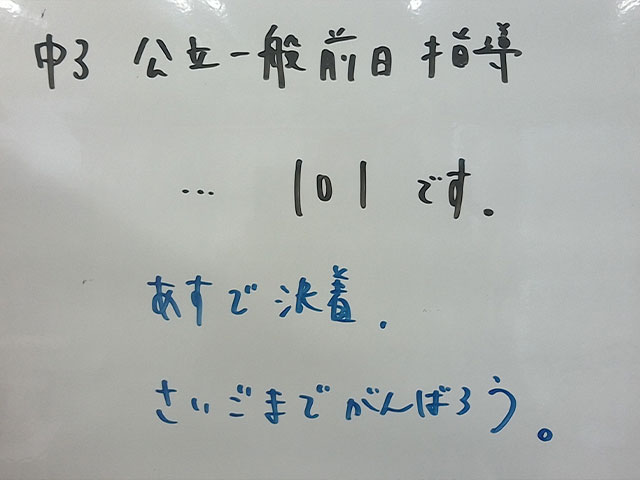 中3 公立一般前日指導
… 101 です.
あすで決着.
さいごまでがんばろう。